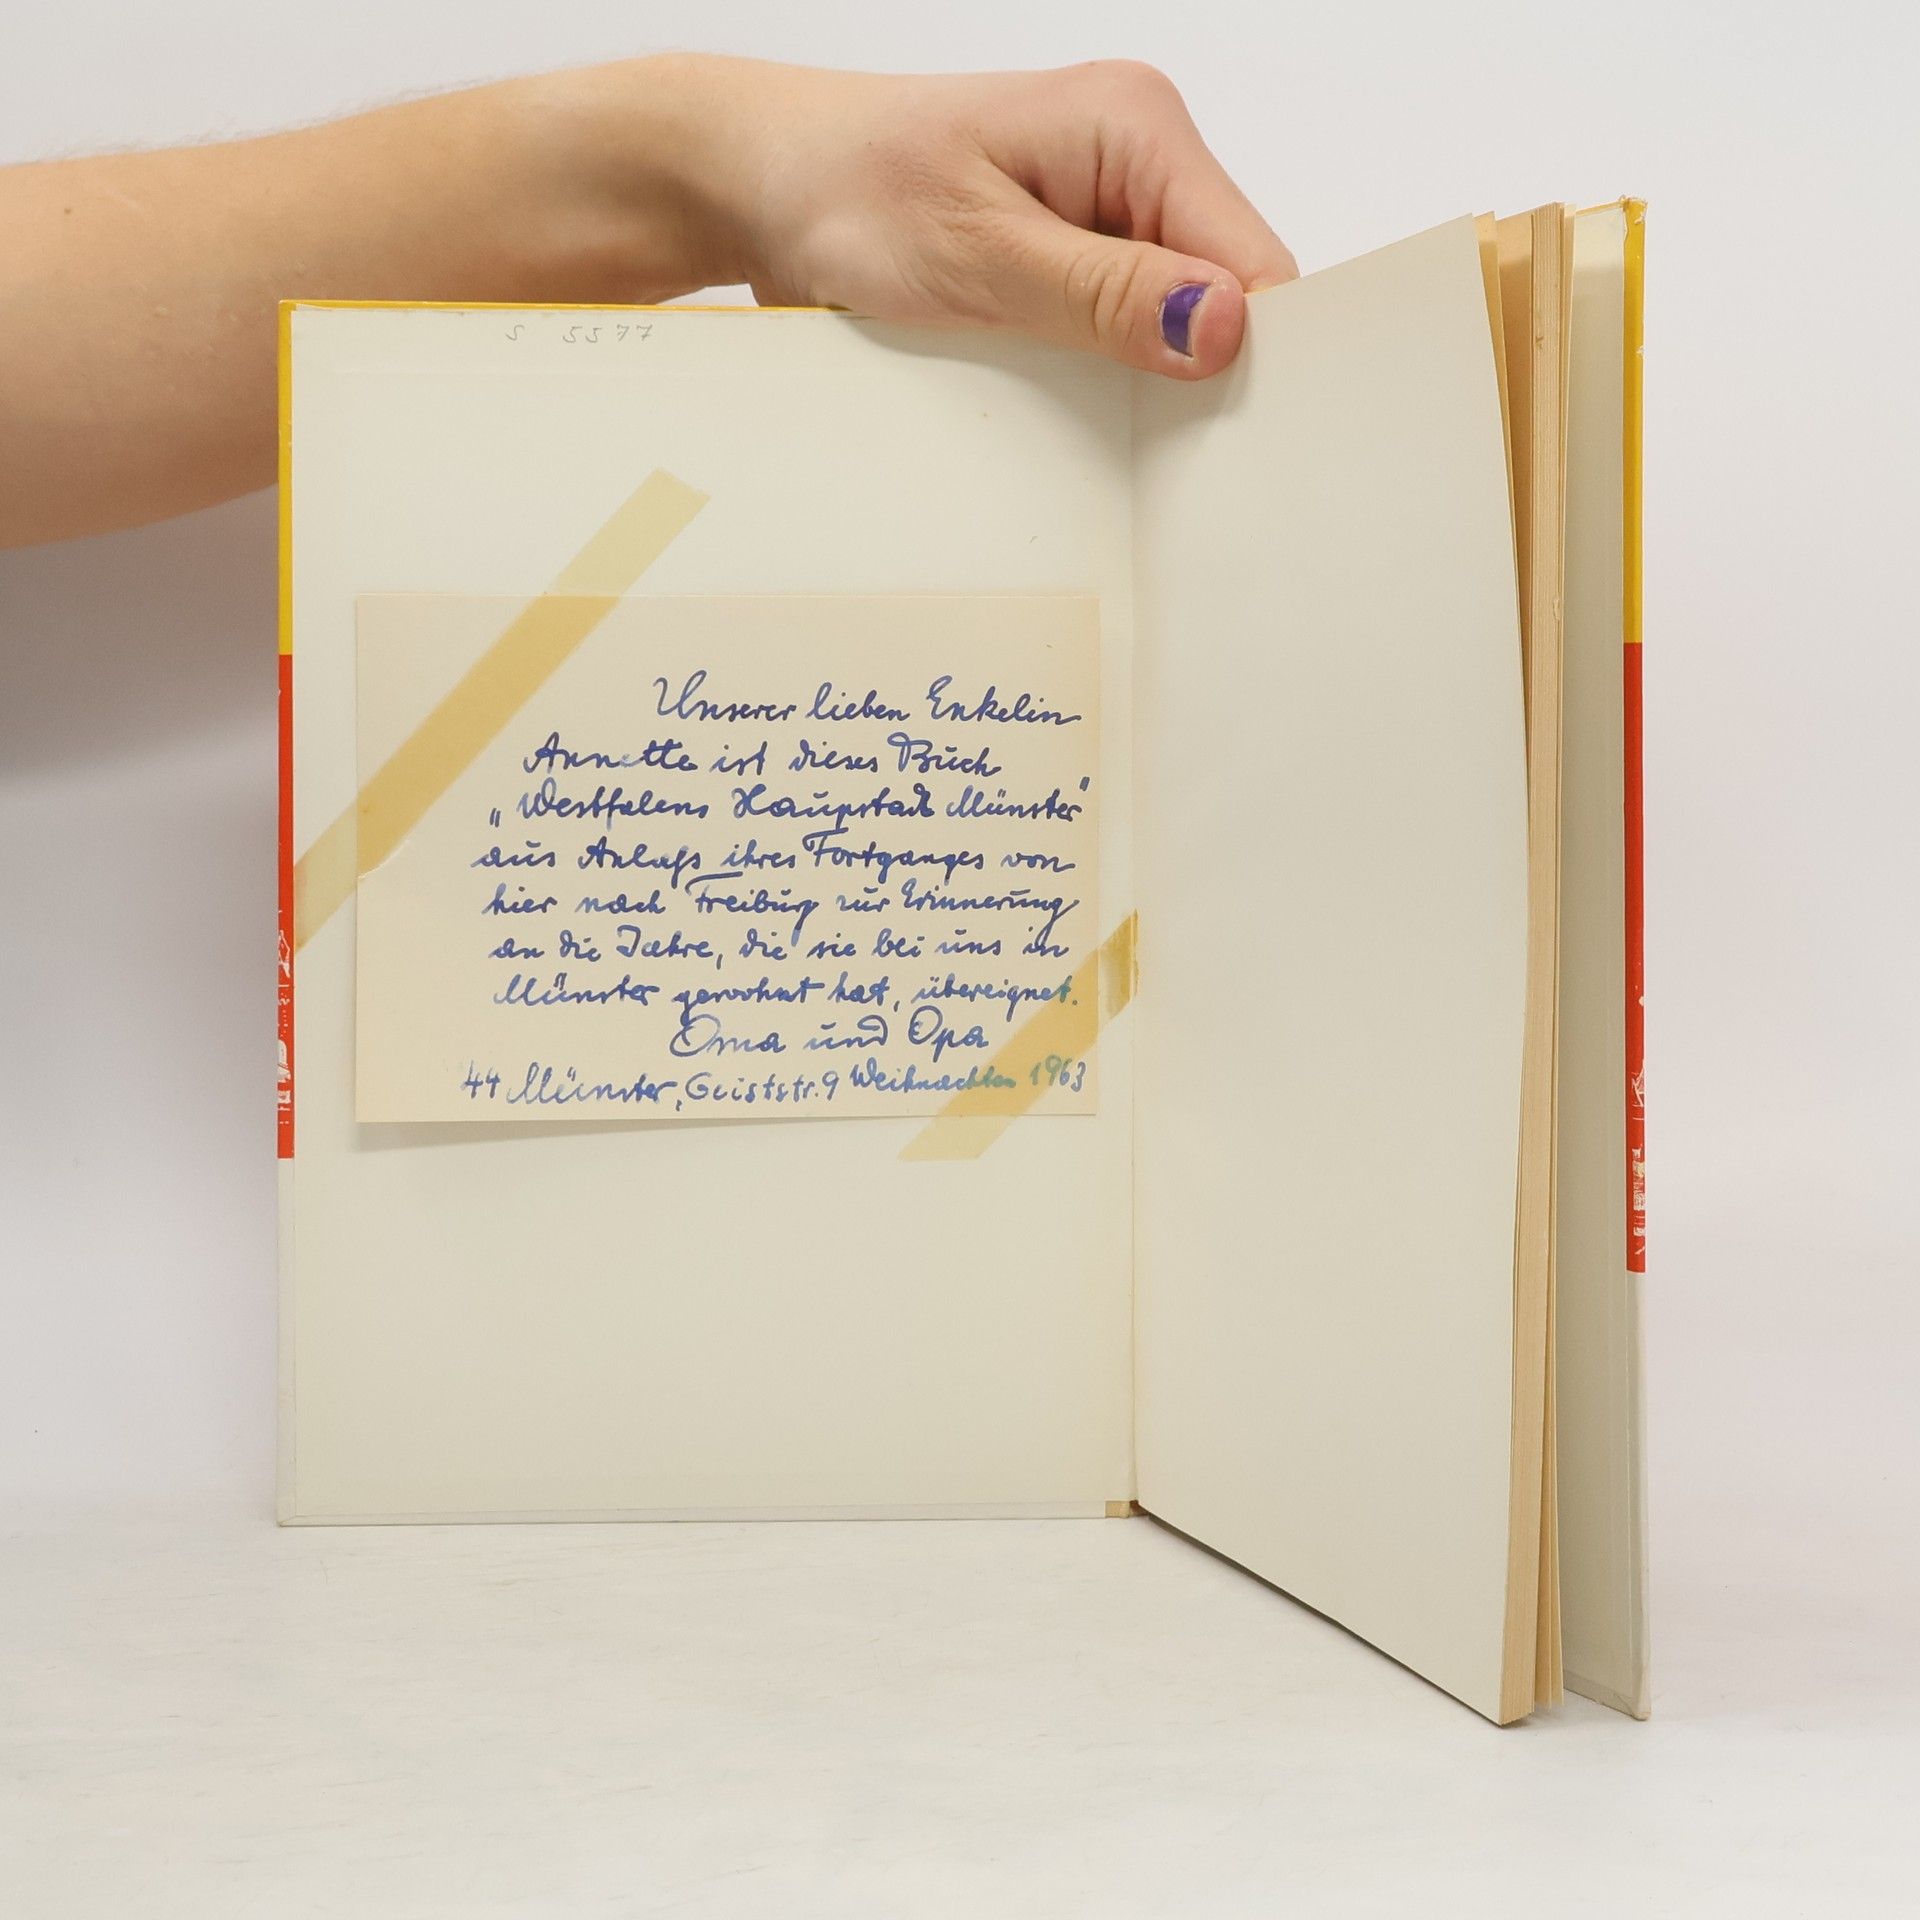 S 5577
Unserer lieben Enkelin
Annette ist dieses Buch
„Westfalens Hauptstadt Münster"
aus Anlaß ihres Fortganges von
hier nach Freiburg zur Erinnerung
an die Jahre, die sie bei uns in
Münster gewohnt hat, übereignet.
Oma und Opa
44 Münster, Geiststr. 9 Weihnachten 1963